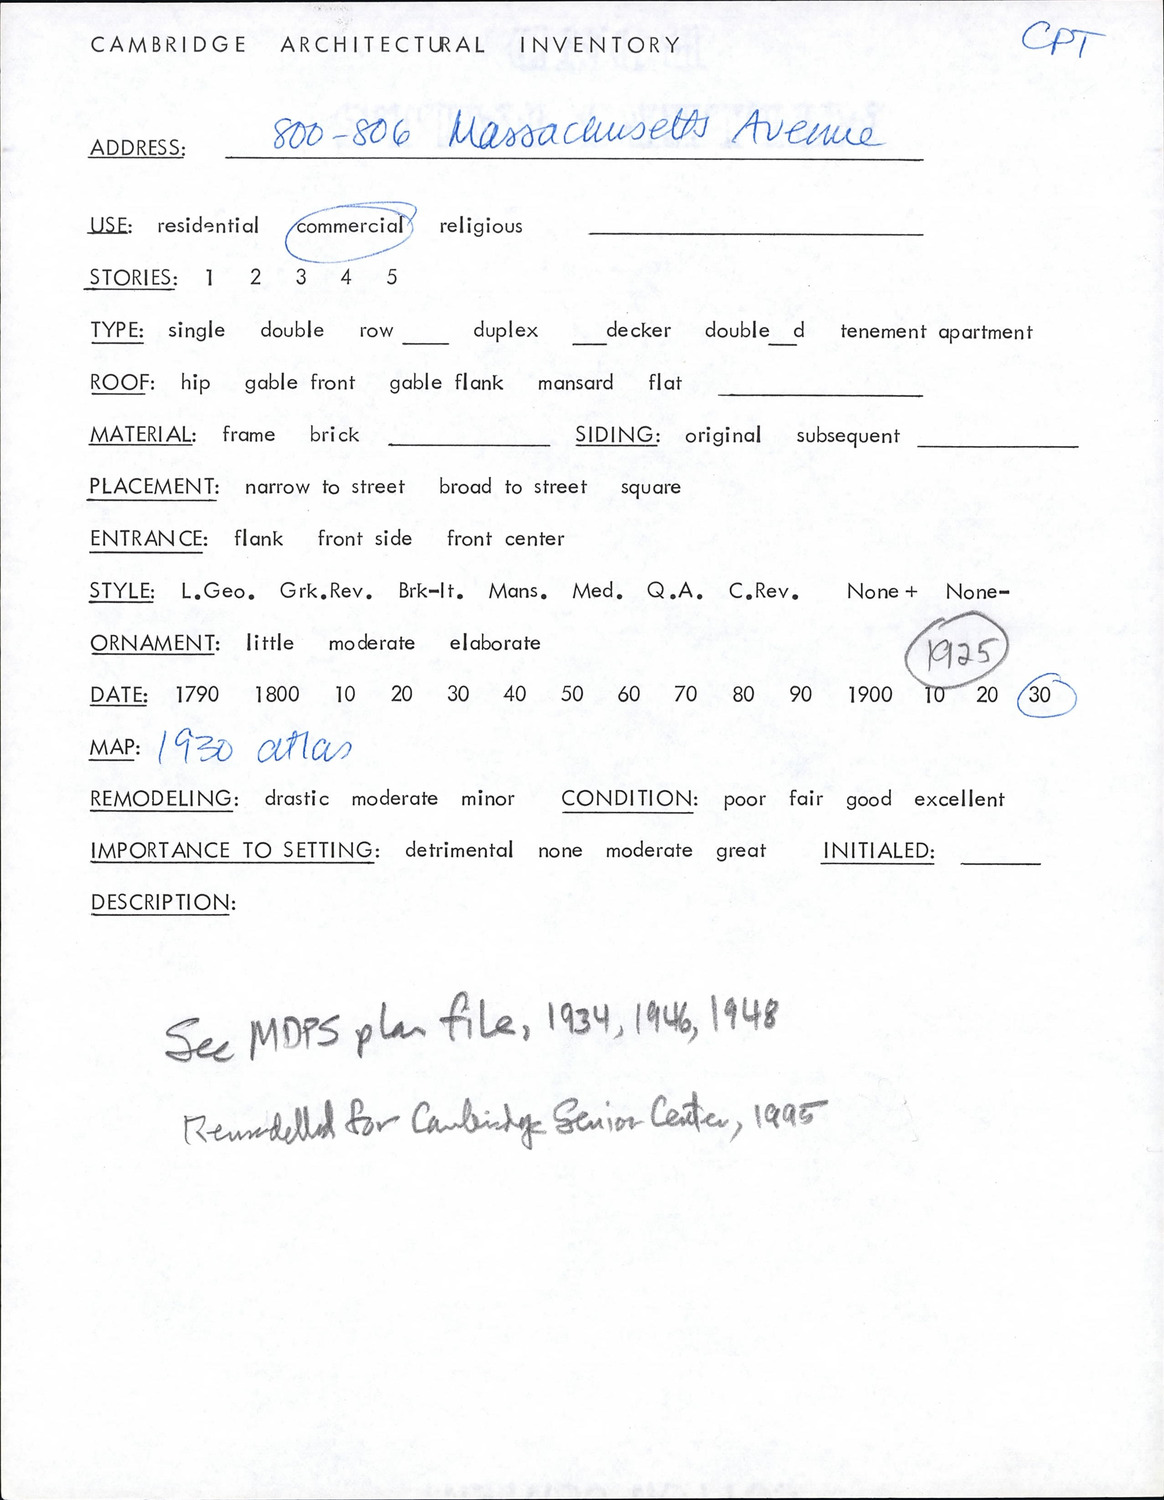 CAMBRIDGE ARCHITECTURAL INVENTORY CPT
ADDRESS: 800-806 Massachusetts Avenue
USE: residential commercial religious
STORIES: 1 2 3 4 5
TYPE: single double row ____ duplex ___decker double__d tenement apartment
ROOF: hip gable front gable flank mansard flat
MATERIAL: frame brick SIDING: original subsequent
PLACEMENT: narrow to street broad to street square
ENTRANCE: flank front side front center
STYLE: L.Geo. Grk.Rev. Brk-It. Mans. Med. Q.A. C.Rev. None+ None-
ORNAMENT: little moderate elaborate 1925
DATE: 1790 1800 10 20 30 40 50 60 70 80 90 1900 10 20 30
MAP: 1930 atlas
REMODELING: drastic moderate minor CONDITION: poor fair good excellent
IMPORTANCE TO SETTING: detrimental none moderate great INITIALED:
DESCRIPTION:
See MDPS plan file, 1934, 1946, 1948
Remodelled for Cambridge Senior Center, 1995